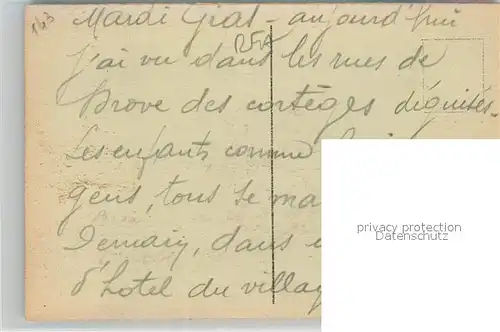 143
Mardi Gras - aujourd'hui
j'ai vu dans les rues de
Brove des cortèges déguisés.
Les enfants comme
gens, tous se ma
Demain, dans
d'hotel du villag
privacy protection
Datenschutz